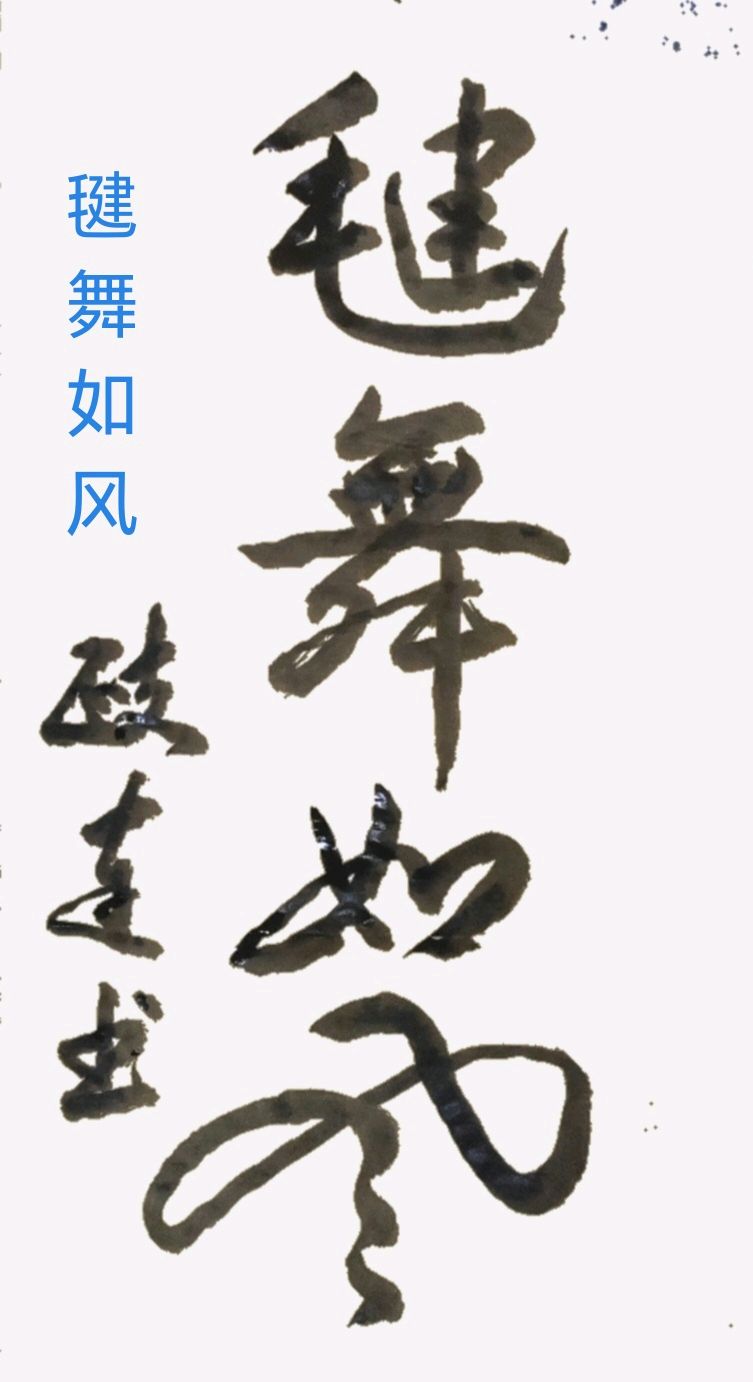 毽舞如风
毽舞如风
书